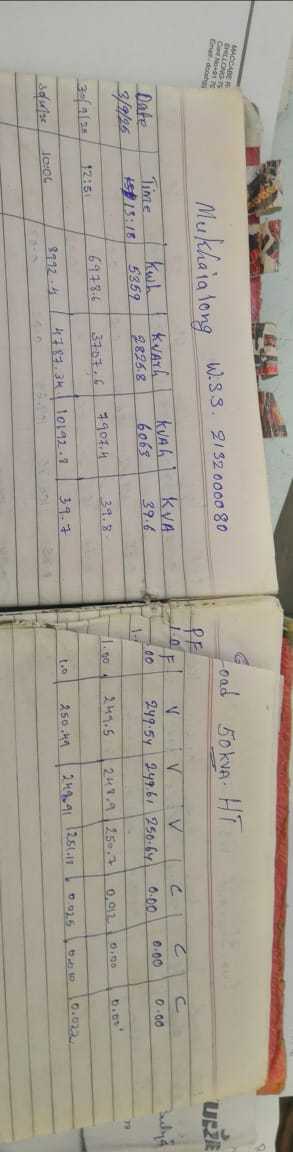 MACCABE R
SHILLONG
Mukhaialong W.S.S. 2132000080
Load 50 KVA. HT
Date Time Kwh KVArh KVAh KVA PF V V V C C C
3/9/25 13:18 5359 2825.8 6063 39.6 1.00 249.54 249.61 250.64 0.00 0.00 0.00
30/9/25 12:51 6978.6 3707.6 7907.4 39.8 1.00 249.5 248.9 250.7 0.012 0.00 0.00
10:06 8992.4 4787.34 10192.8 39.7 1.0 250.49 249.91 251.18 0.025 0.010 0.022